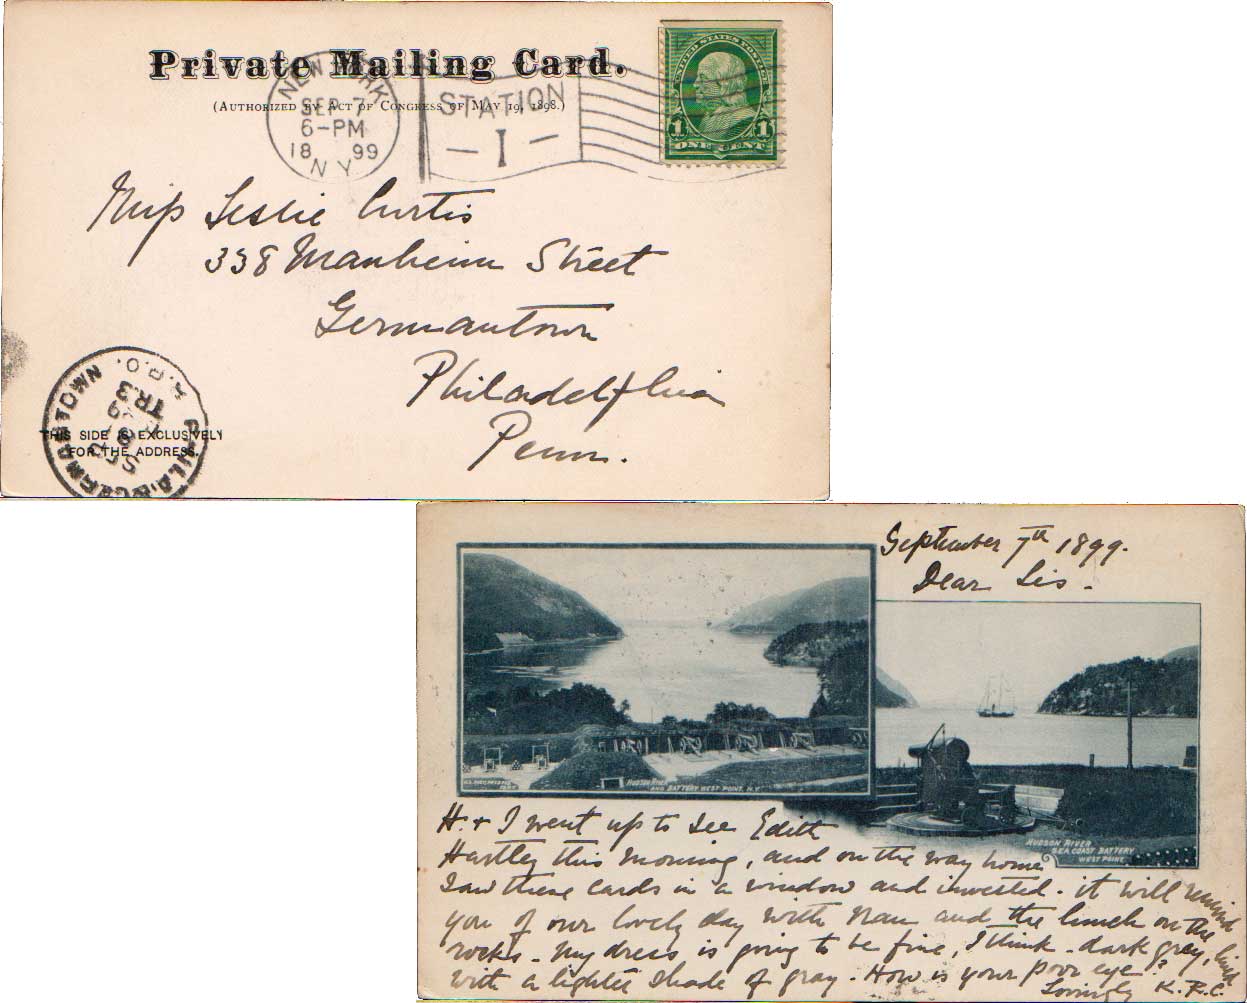 Private Mailing Card.
(Authorized by Act of Congress of May 19, 1898.)
NEW YORK
SEP 7
6-PM
18 99
N Y
STATION
I
UNITED STATES POSTAGE
1 1
ONE CENT
Miss Leslie Curtis
338 Manheim Street
Germantown
Philadelphia
Penn.
THIS SIDE IS EXCLUSIVELY
FOR THE ADDRESS.
PHILA. GERMANTOWN
TR.3
September 7th 1899.
Dear Sis -
HUDSON RIVER
AND BATTERY WEST POINT, N.Y.
HUDSON RIVER
SEA COAST BATTERY
WEST POINT
H. & I went up to see Edith
Hartley this morning, and on the way home
saw these cards in a window and invested - it will remind
you of our lovely day with Nan and the lunch on the
rocks - My dress is going to be fine, I think - dark gray, lined
with a lighter shade of gray. How is your poor eye?
Lovingly K.R.C.